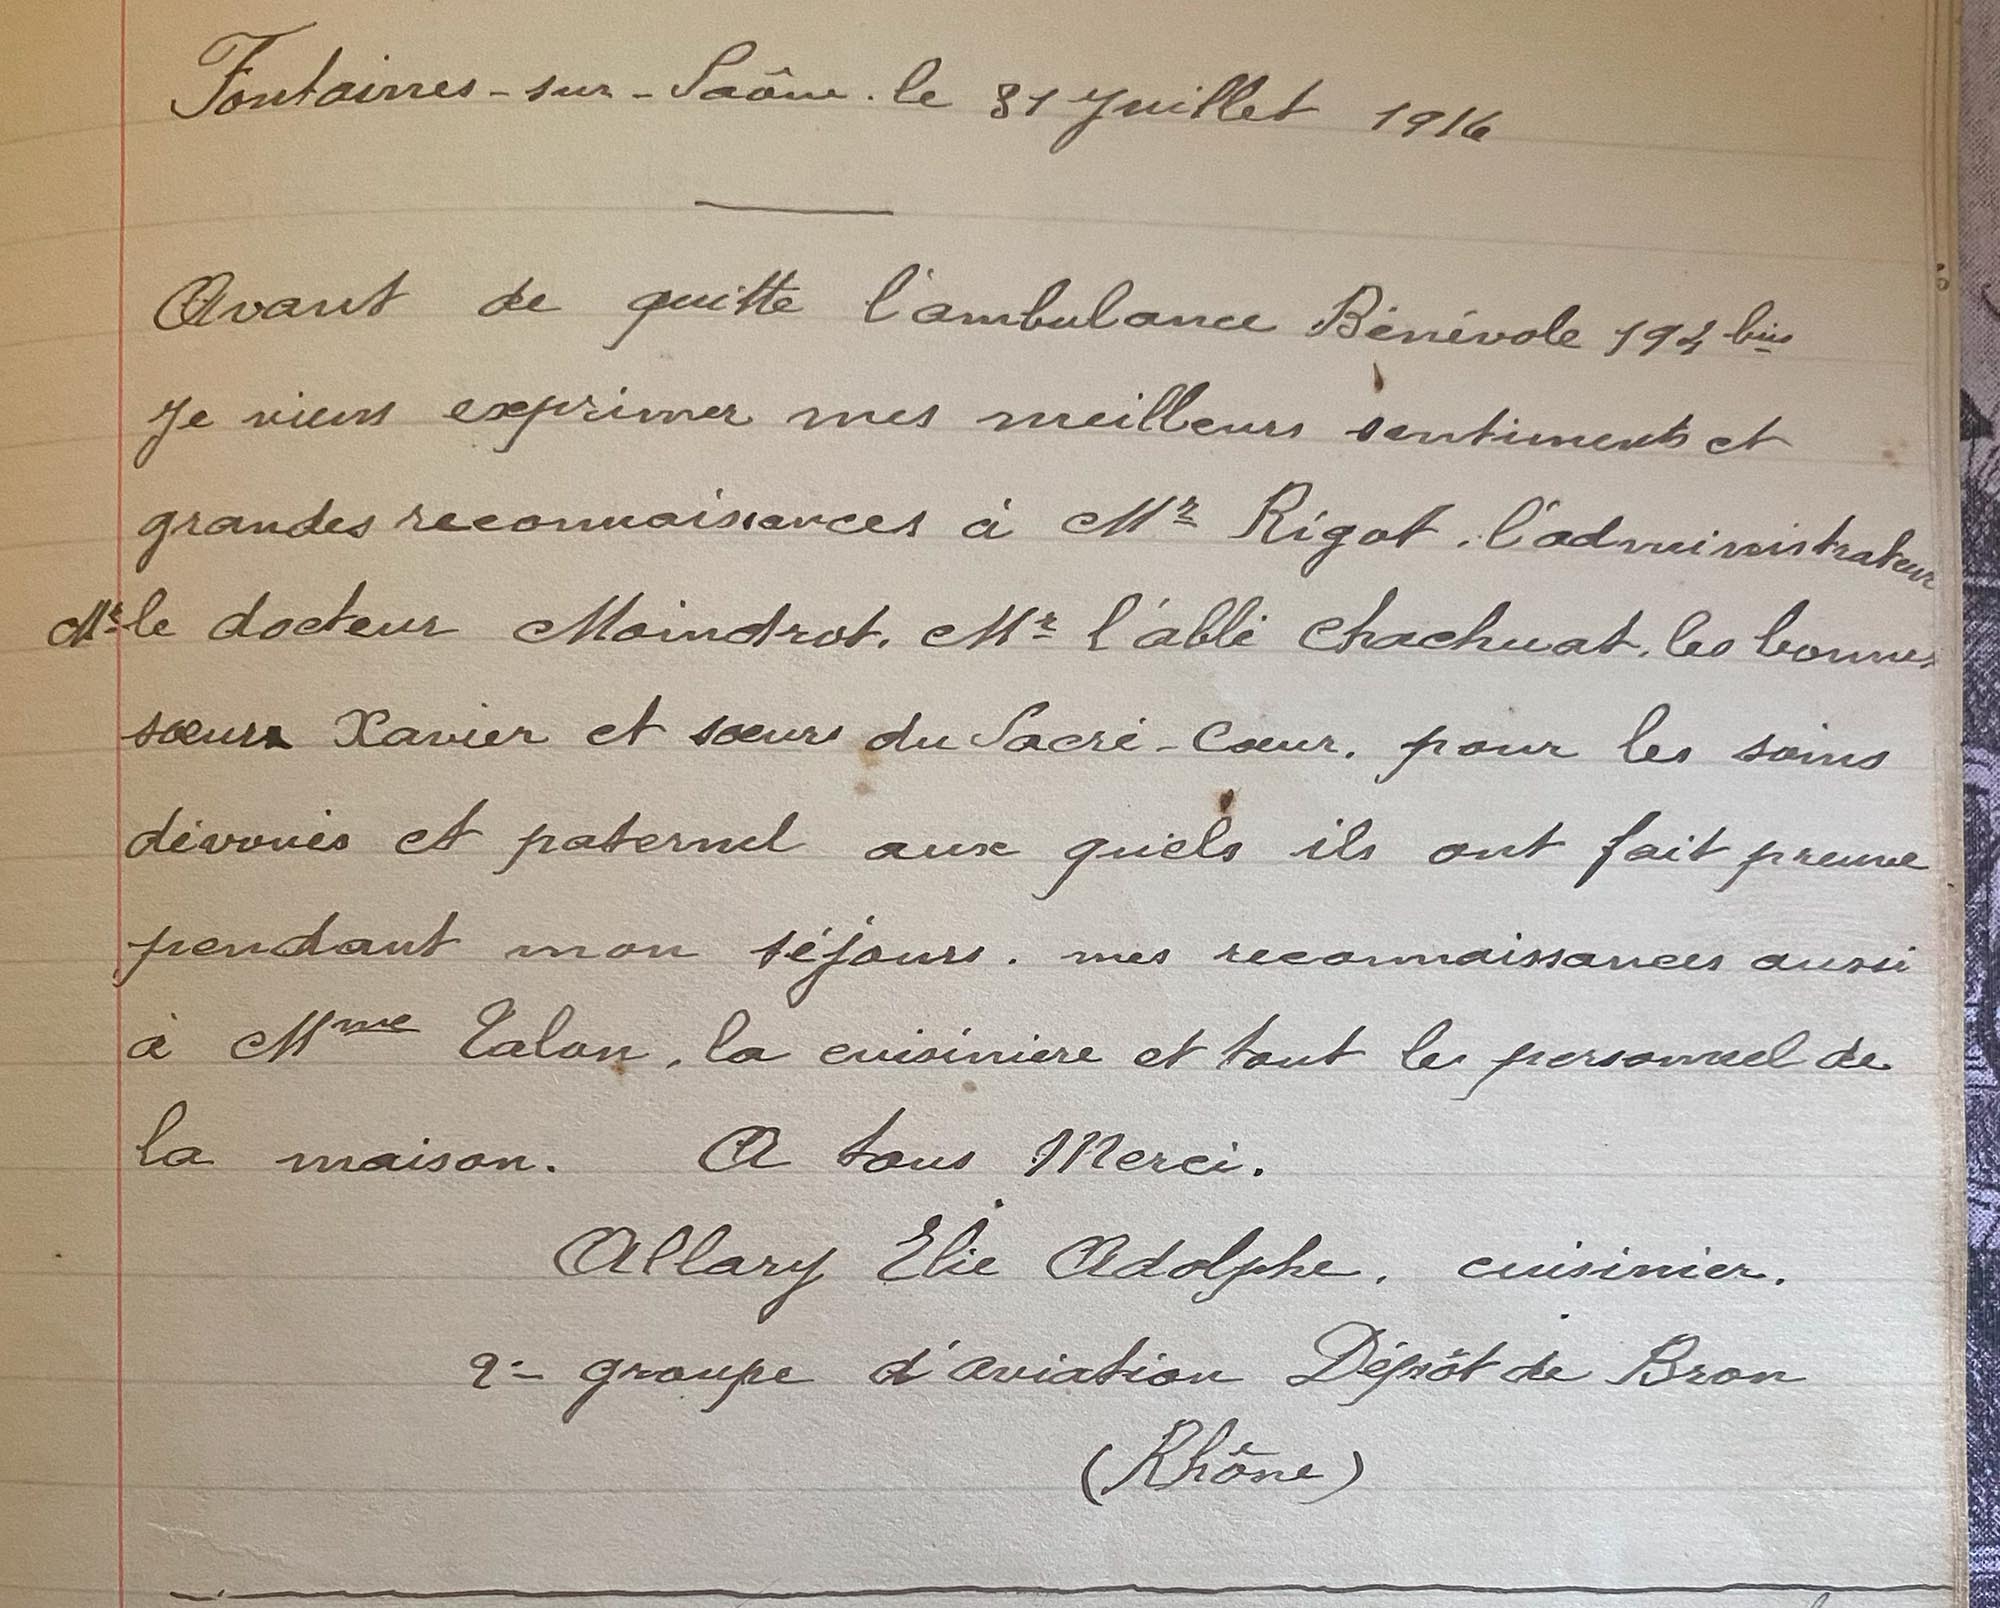 Fontaines-sur-Saône. le 31 Juillet 1916
Avant de quitte l'ambulance Bénévole 194 bis
Je viens exprimer mes meilleurs sentiments et
grandes reconnaissances à Mr Rigot. l'administrateur
Mr le docteur Moindrot. Mr l'abbé Chachuat. les bonnes
sœurs Xavier et sœurs du Sacré-Cœur. pour les soins
dévoués et paternel aux quiels ils ont fait preuve
pendant mon séjours. mes reconnaissances aussi
à Mme Talon, la cuisiniere et tout le personnel de
la maison. A tous Merci.
Allary Elie Adolphe. cuisinier.
2e groupe d'aviation Dépôt de Bron
(Rhône)